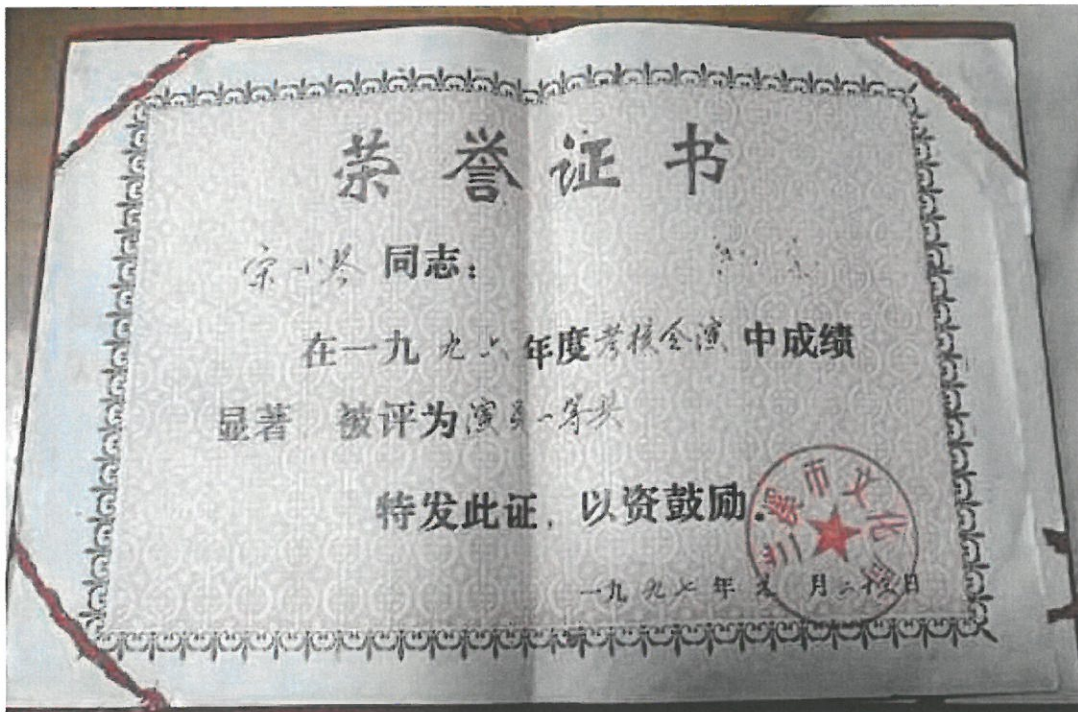 荣誉证书
宋小琴 同志:
在一九九六年度考核会演中成绩
显著 被评为演员一等奖
特发此证, 以资鼓励.
兰溪市文化局
一九九七年 月二十 日